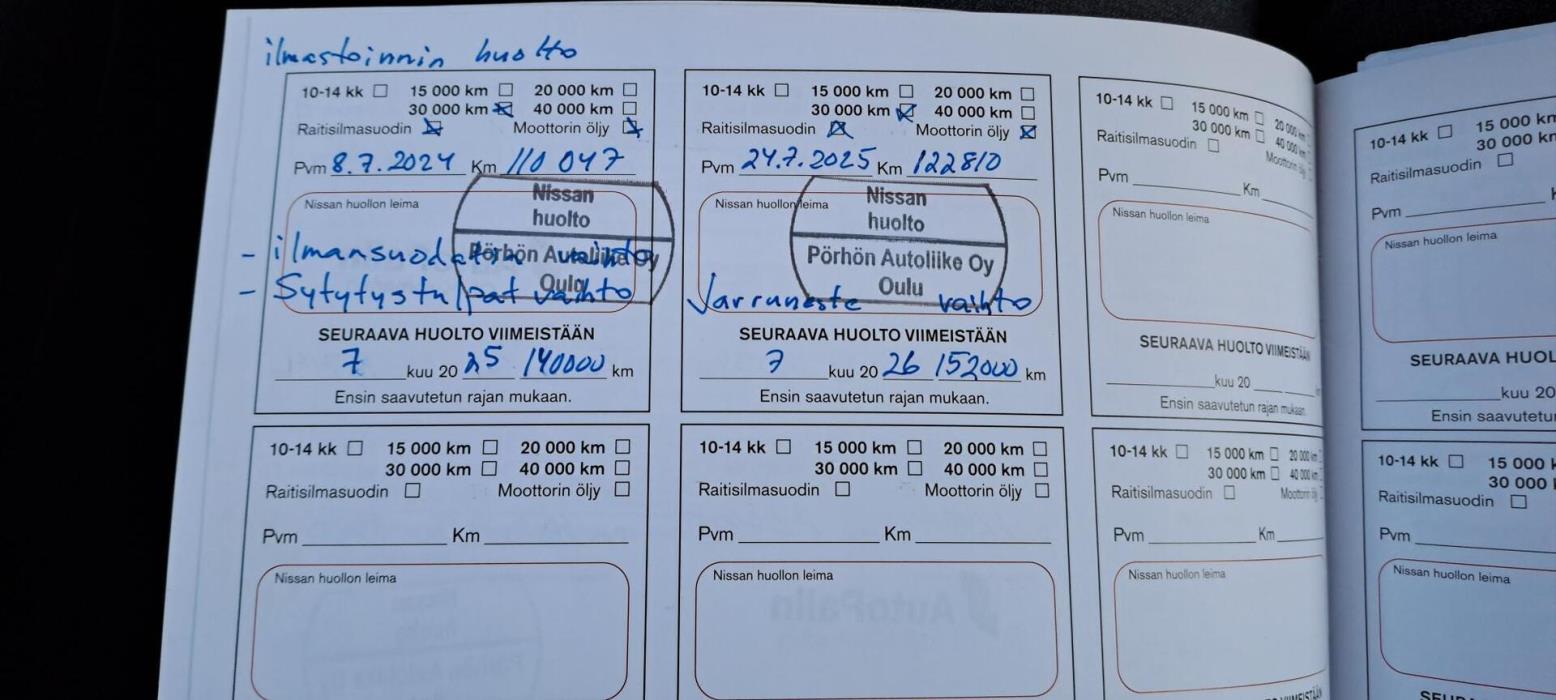 ilmastoinnin huolto
10-14 kk 15 000 km 20 000 km
30 000 km 40 000 km
Raitisilmasuodin Moottorin öljy
Pvm 8.7.2024 Km 110 047
Nissan huollon leima
Nissan
huolto
Pörhön Autoliike Oy
Oulu
- ilmansuodatin vaihto
- Sytytystulpat vaihto
SEURAAVA HUOLTO VIIMEISTÄÄN
7 kuu 20 25 140000 km
Ensin saavutetun rajan mukaan.
10-14 kk 15 000 km 20 000 km
30 000 km 40 000 km
Raitisilmasuodin Moottorin öljy
Pvm 24.7.2025 Km 122810
Nissan huollon leima
Nissan
huolto
Pörhön Autoliike Oy
Oulu
Jarruneste vaihto
SEURAAVA HUOLTO VIIMEISTÄÄN
7 kuu 20 26 152000 km
Ensin saavutetun rajan mukaan.
10-14 kk 15 000 km 20 000 km
30 000 km 40 000 km
Raitisilmasuodin Moottorin öljy
Pvm Km
Nissan huollon leima
SEURAAVA HUOLTO VIIMEISTÄÄN
kuu 20
Ensin saavutetun rajan mukaan.
10-14 kk 15 000 km
30 000 km
Raitisilmasuodin
Pvm
Nissan huollon leima
SEURAAVA HUOL
kuu 20
Ensin saavutetu
10-14 kk 15 000 km 20 000 km
30 000 km 40 000 km
Raitisilmasuodin Moottorin öljy
Pvm Km
Nissan huollon leima
10-14 kk 15 000 km 20 000 km
30 000 km 40 000 km
Raitisilmasuodin Moottorin öljy
Pvm Km
Nissan huollon leima
10-14 kk 15 000 km 20 000 km
30 000 km 40 000 km
Raitisilmasuodin Moottorin öljy
Pvm Km
Nissan huollon leima
10-14 kk 15 000
30 000
Raitisilmasuodin
Pvm
Nissan huollon leima